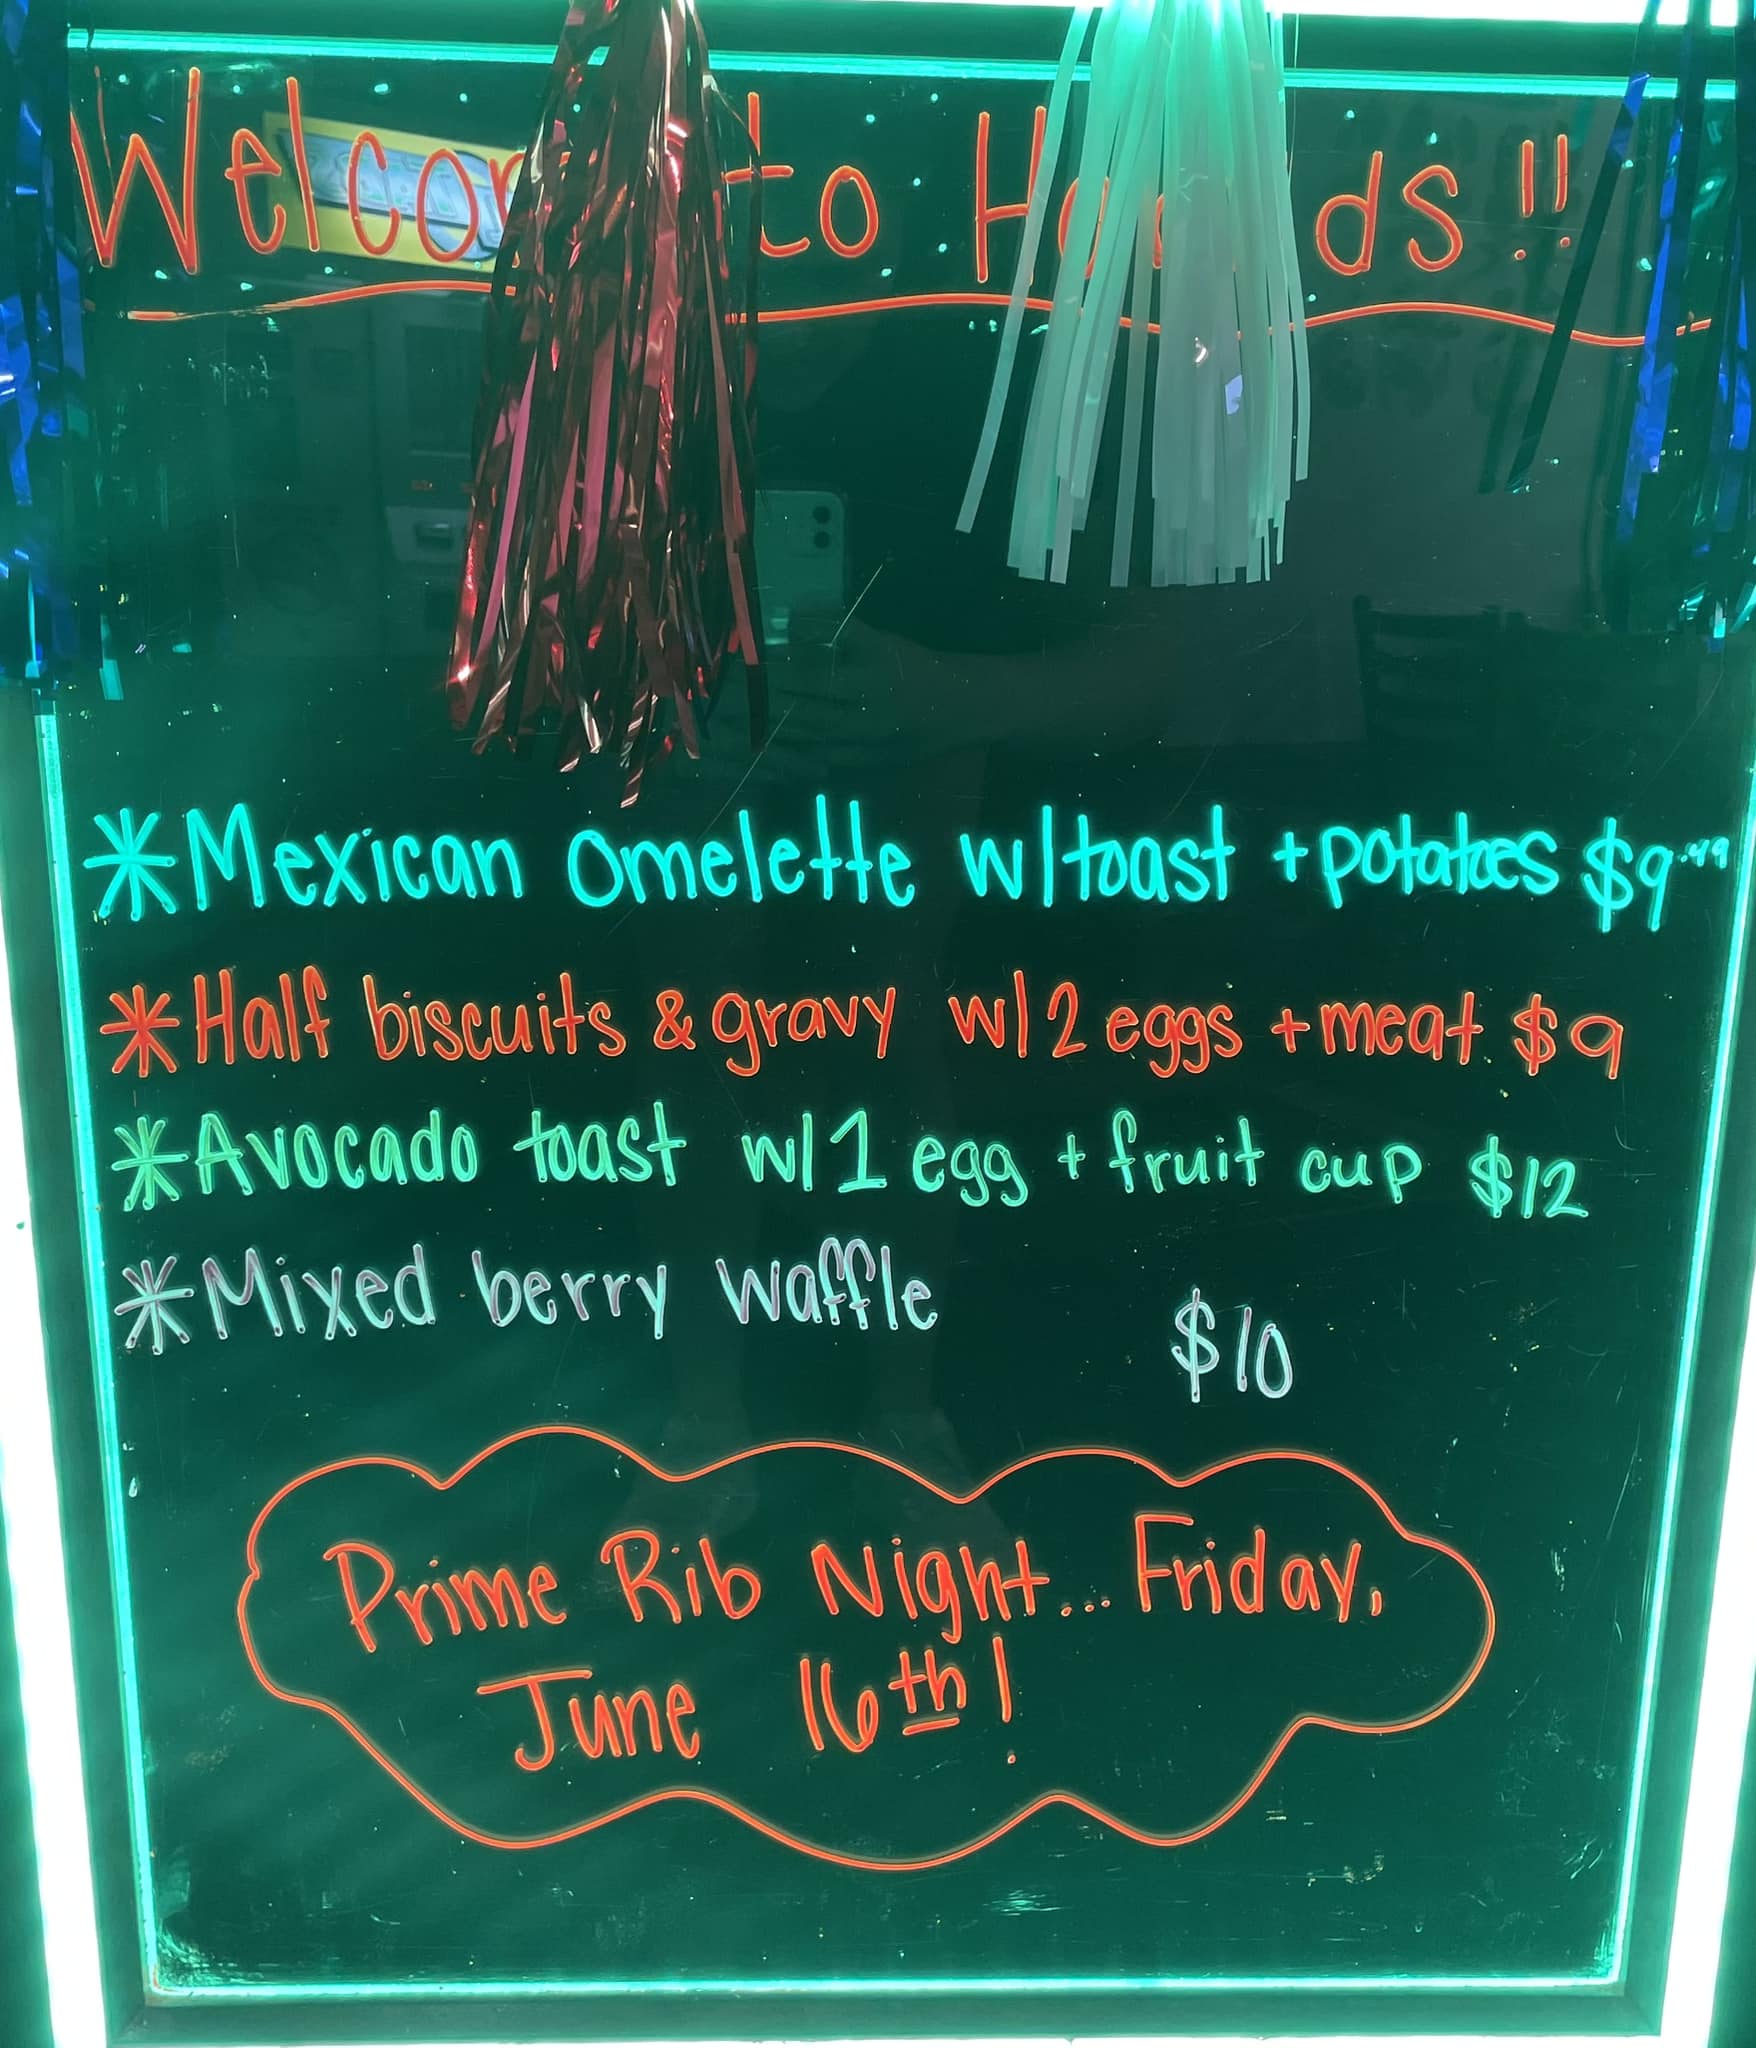 to !!
*Mexican omelette w/toast + potatoes $9.49
*Half biscuits & gravy w/2 eggs + meat $9
*Avocado toast w/1 egg + fruit cup $12
*Mixed berry waffle $10
Prime Rib Night... Friday,
June 16th!